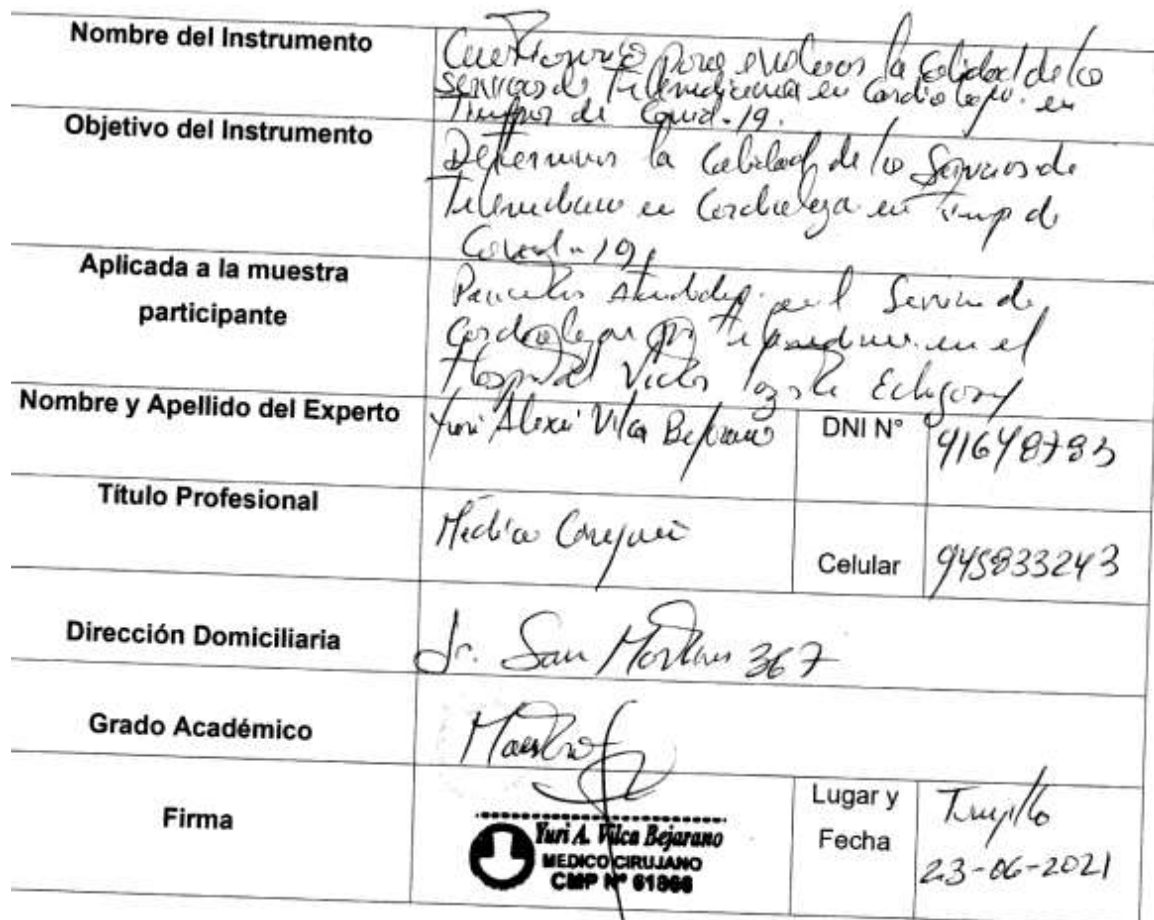 Nombre del Instrumento
Cuestionario para evaluar la calidad de los
servicios de Telemedicina en Cardiología en
Tiempos de Covid-19.
Objetivo del Instrumento
Determinar la Calidad de los Servicios de
Telemedicina en Cardiología en Tiemp de
Covid-19
Aplicada a la muestra
participante
Pacientes Atendidos en el Servicio de
Cardiología por Telemedicina en el
Hospital Victor Lazarte Echegaray
Nombre y Apellido del Experto
Yuri Alexei Vilca Bejarano
DNI N°
Título Profesional
Médico Cirujano
Celular
945833243
Dirección Domiciliaria
Jr. San Martin 367
Grado Académico
Maestro
Firma
Yuri A. Vilca Bejarano
MEDICO CIRUJANO
CMP N°
Lugar y
Fecha
Trujillo
23-06-2021